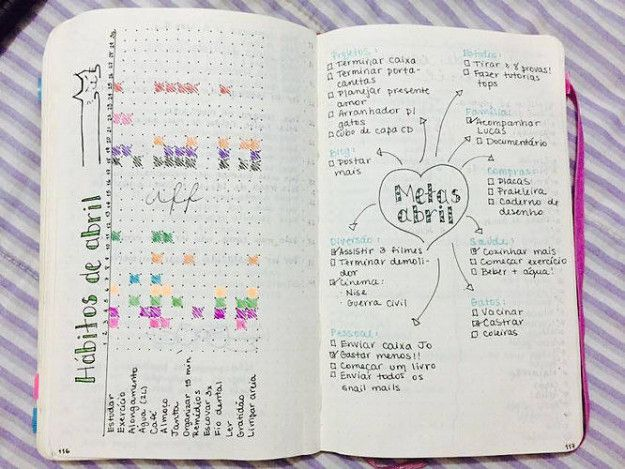 Hábitos de abril
uff
Estudar
Exercício
Alongamento
Água (2L)
Café
Almoço
Janta
Organizar 15 min
Remédios
Escovar 3x
Fio dental
Ler
Gratidão
Limpar areia
116
Projetos:
Terminar caixa
Terminar porta-
canetas
Planejar presente
amor
Arranhador p/
gatos
Cubo de capa CD
Blog:
Postar
mais
Diversão:
Assistir 3 filmes
Terminar demoli-
dor
Cinema:
- Nise
- Guerra Civil
Pessoal:
Enviar caixa Jo
Gastar menos!!
Começar um livro
Enviar todos os
snail mails
Metas
abril
Estudos:
Tirar 8 provas!
Fazer tutorias
tops
Família:
Acompanhar
Lucas
Documentário
Compras:
Placas
Prateleira
Caderno de
desenho
Saúde:
Cozinhar mais
Começar exercício
Beber + água!
Gatos:
Vacinar
Castrar
Coleiras
117